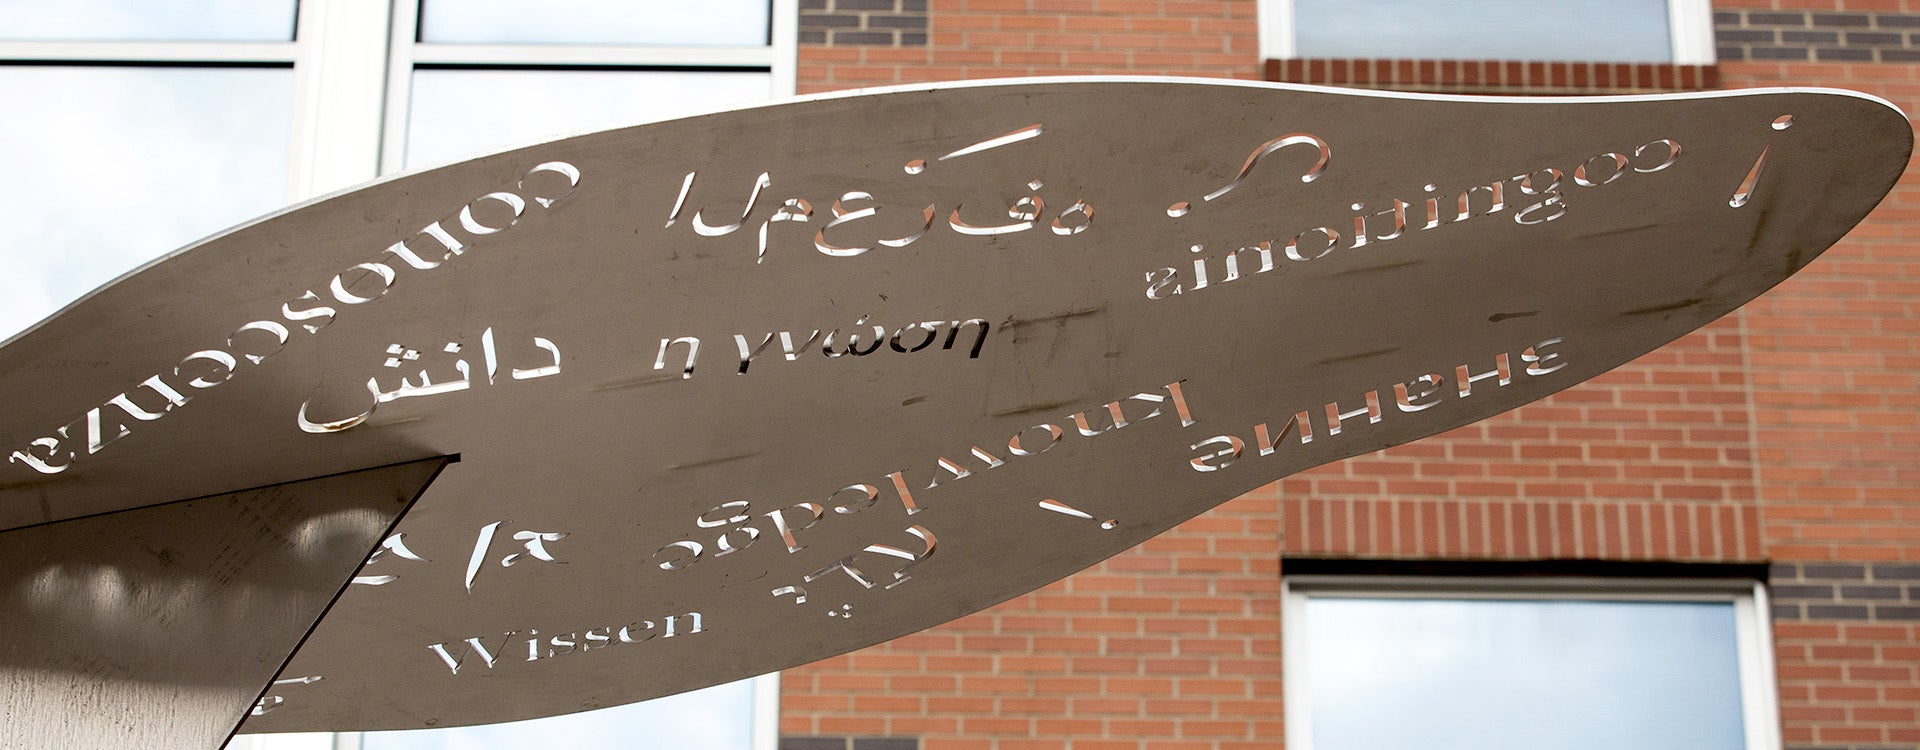 conoscenza
المعرفة
cognitionis
دانش
η γνώση
знание
knowledge
Wissen